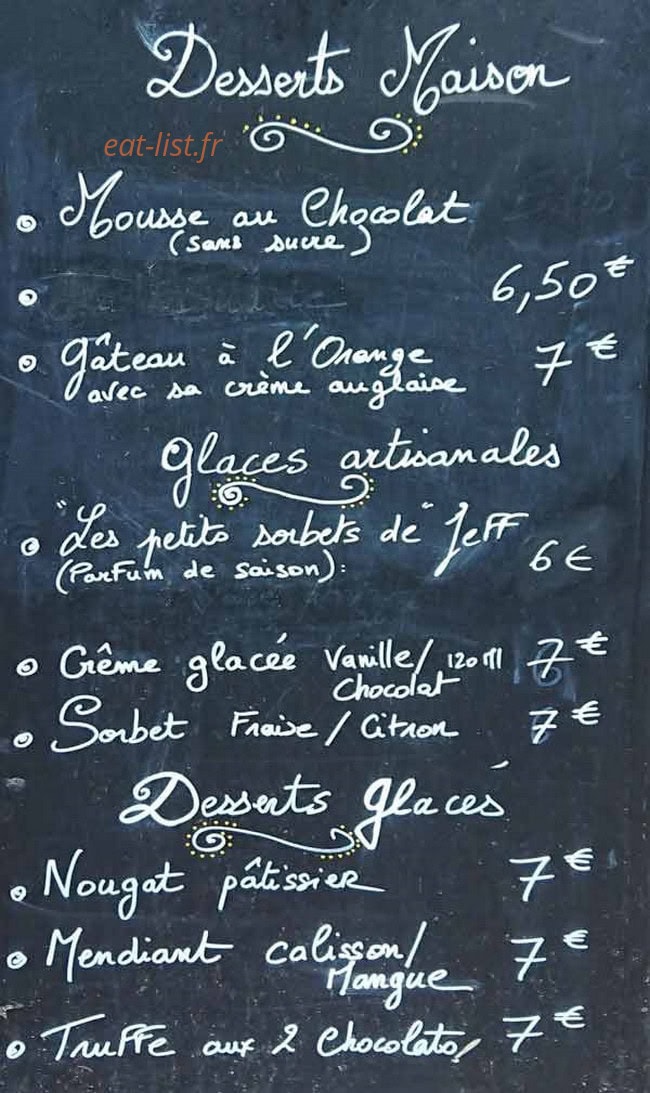 Desserts Maison
eat-list.fr
Mousse au Chocolat
(sans sucre)
6,50€
gâteau à l'Orange 7€
avec sa crème anglaise
glaces artisanales
"Les petits sorbets de" Jeff
(Parfum de saison): 6€
Crème glacée Vanille/ 120 ml 7€
Chocolat
Sorbet Fraise / Citron 7€
Desserts glacés
Nougat pâtissier 7€
Mendiant calisson/ 7€
Mangue
Truffe aux 2 chocolats 7€